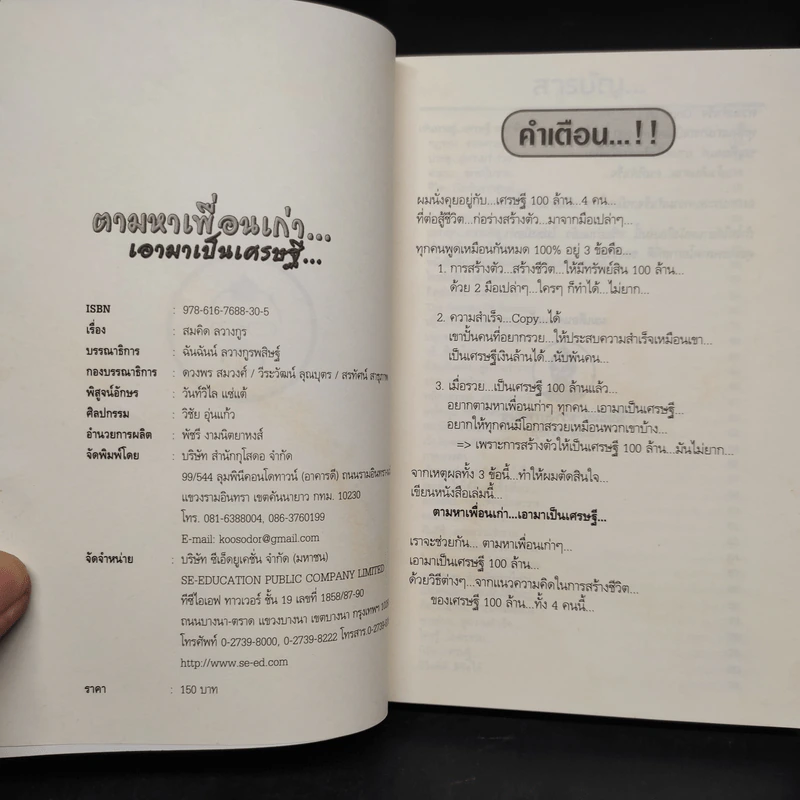 ตามหาเพื่อนเก่า...
เอามาเป็นเศรษฐี...
ISBN : 978-616-7688-30-5
เรื่อง : สมคิด ลวางกูร
บรรณาธิการ : ฉันฉันน์ ลวางกูรพสิษฐ์
กองบรรณาธิการ : ดวงพร สมวงศ์ / วีระวัฒน์ ลุณบุตร / สรทัศน์
พิสูจน์อักษร : วันทวิไล แซ่แต้
ศิลปกรรม : วิชัย อุ่นแก้ว
อำนวยการผลิต : พัชรี งามนิตยาหงส์
จัดพิมพ์โดย : บริษัท สำนักกูโสดอ จำกัด
99/544 ลุมพินีคอนโดทาวน์ (อาคารดี) ถนนรามอินทรา
แขวงรามอินทรา เขตคันนายาว กทม. 10230
โทร. 081-6388004, 086-3760199
E-mail: koosodor@gmail.com
จัดจำหน่าย : บริษัท ซีเอ็ดยูเคชั่น จำกัด (มหาชน)
SE-EDUCATION PUBLIC COMPANY LIMITED
ทีซีไอเอฟ ทาวเวอร์ ชั้น 19 เลขที่ 1858/87-90
ถนนบางนา-ตราด แขวงบางนา เขตบางนา กรุงเทพฯ
โทรศัพท์ 0-2739-8000, 0-2739-8222 โทรสาร.
http://www.se-ed.com
ราคา : 150 บาท
คำเตือน...!!
ผมนั่งคุยอยู่กับ...เศรษฐี 100 ล้าน...4 คน...
ที่ต่อสู้ชีวิต...ก่อร่างสร้างตัว...มาจากมือเปล่าๆ...
ทุกคนพูดเหมือนกันหมด 100% อยู่ 3 ข้อคือ...
1. การสร้างตัว...สร้างชีวิต...ให้มีทรัพย์สิน 100 ล้าน...
ด้วย 2 มือเปล่าๆ...ใครๆ ก็ทำได้...ไม่ยาก...
2. ความสำเร็จ...Copy...ได้
เขาปั้นคนที่อยากรวย...ให้ประสบความสำเร็จเหมือนเขา...
เป็นเศรษฐีเงินล้านได้..นับพันคน...
3. เมื่อรวย...เป็นเศรษฐี 100 ล้านแล้ว...
อยากตามหาเพื่อนเก่าๆ ทุกคน...เอามาเป็นเศรษฐี...
อยากให้ทุกคนมีโอกาสรวยเหมือนพวกเขาบ้าง...
=> เพราะการสร้างตัวให้เป็นเศรษฐี 100 ล้าน...มันไม่ยาก...
จากเหตุผลทั้ง 3 ข้อนี้...ทำให้ผมตัดสินใจ...
เขียนหนังสือเล่มนี้...
ตามหาเพื่อนเก่า...เอามาเป็นเศรษฐี...
เราจะช่วยกัน... ตามหาเพื่อนเก่าๆ...
เอามาเป็นเศรษฐี 100 ล้าน...
ด้วยวิธีต่างๆ...จากแนวความคิดในการสร้างชีวิต...
ของเศรษฐี 100 ล้าน...ทั้ง 4 คนนี้...